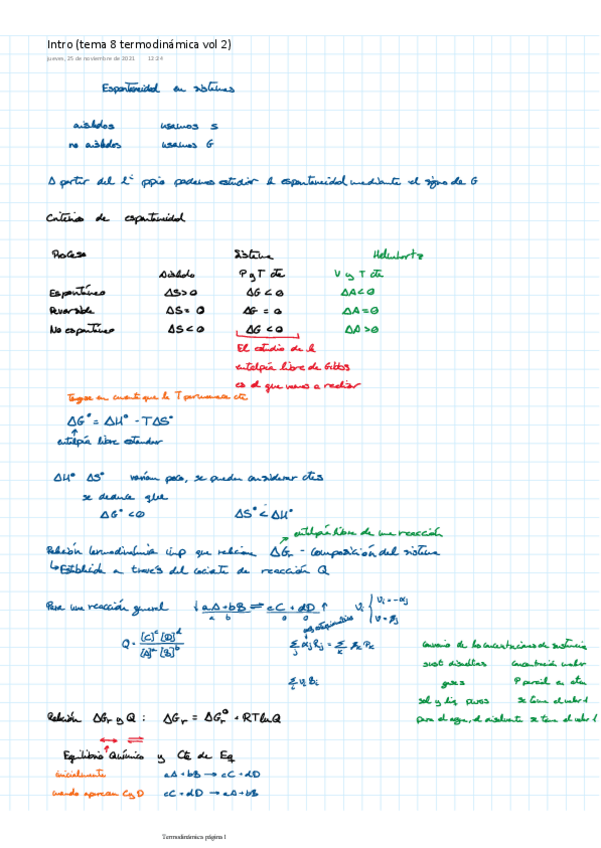 Intro (tema 8 termodinámica vol 2)
jueves, 25 de noviembre de 2021 12:24
Espontaneidad en sistemas
aislados usamos S
no aislados usamos G
A partir del 1er ppio podemos estudiar la espontaneidad mediante el signo de G
Criterios de espontaneidad
Proceso Sistema Helmhortz
Aislado P y T cte V y T cte
Espontáneo ΔS>0 ΔG<0 ΔA<0
Reversible ΔS=0 ΔG=0 ΔA=0
No espontáneo ΔS<0 ΔG<0 ΔA>0
El estudio de la
entalpía libre de Gibbs
es el que vamos a realizar
Tengase en cuenta que la T permanece cte
ΔG° = ΔH° - TΔS°
entalpía libre estandar
ΔH° ΔS° varían poco, se pueden considerar ctes
se deduce que
ΔG°<0 ΔS°<ΔH°
entalpía libre de una reacción
Relación termodinámica imp que relaciona ΔGr - composición del sistema
↳ Establecida a través del cociente de reacción Q
Para una reacción general aA+bB ⇌ cC+dD νi { νi=-αj
a b
Q = [C]^c [D]^d / [A]^a [B]^b
convenio de las concentraciones de sustancia
sust disueltas concentración molar
gases P parcial en atm
sol y liq puros se toma el valor 1
para el agua, el disolvente se toma el valor 1
Relación ΔGr y Q : ΔGr = ΔGr° + RTlnQ
Equilibrio Químico y Cte de Eq
inicialmente aA+bB → cC+dD
cuando aparecen C y D cC+dD → aA+bB
Termodinámica página 1